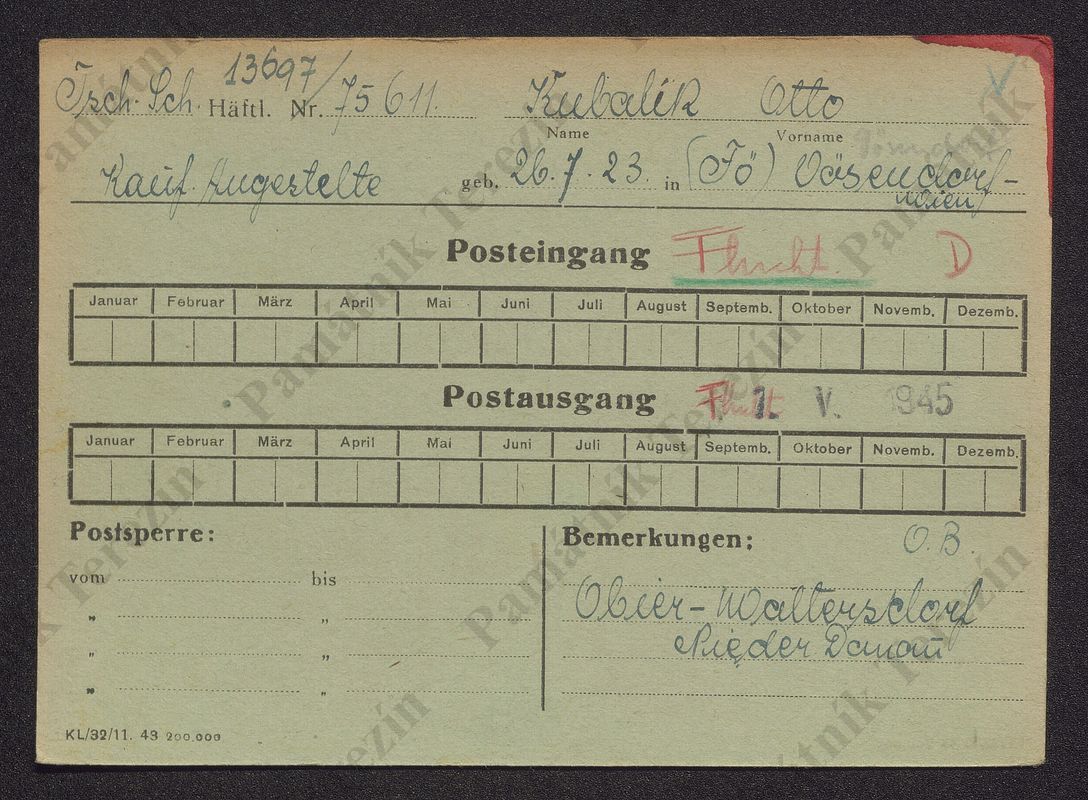 Tsch. Sch. Häftl. Nr. 13697/75611. Kubalík Otto
Name Vorname
Kauf. Angestelte geb. 26.7.23. in (Fö) Vösendorf-
Wien
Posteingang Flucht. D
Januar Februar März April Mai Juni Juli August Septemb. Oktober Novemb. Dezemb.
Postausgang Flucht 1. V. 1945
Januar Februar März April Mai Juni Juli August Septemb. Oktober Novemb. Dezemb.
Postsperre: Bemerkungen: O.B.
vom bis
„ „
Ober-Waltersdorf
„ „
Nieder Danau
„ „
KL/32/11. 43 200.000
Památník Terezín